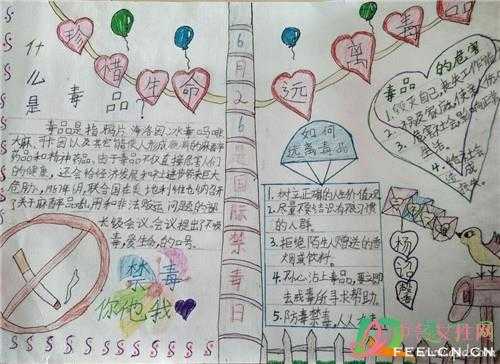 珍惜生命
远离毒品
什么是毒品?
毒品是指鸦片海洛因、冰毒吗啡
大麻、可卡因以及其它能使人形成瘾癖的麻醉
药品和精神药品。由于毒品不仅直接危害人们
的健康,还会给经济发展和社会进步带来巨大
危胁。1987年6月,联合国在奥地利维也纳召开
了关于麻醉品
用和非法贩运问题的部
长级会议。会议提出不吸
毒,爱生命的口号。
禁毒
你他我
6月26是国际禁毒日
如何
远离毒品
1、树立正确的人生价值观。
2、尽量不要结识有恶习惯
的人群。
3、拒绝陌生人赠送的香
烟或饮料。
4、不小心沾上毒品,要立即
去戒毒所寻求帮助。
5、防毒禁毒,人人
毒品的危害
1、毁灭自己
3、危害社会
生活。
4、给社会
造成
FEELCN.CN